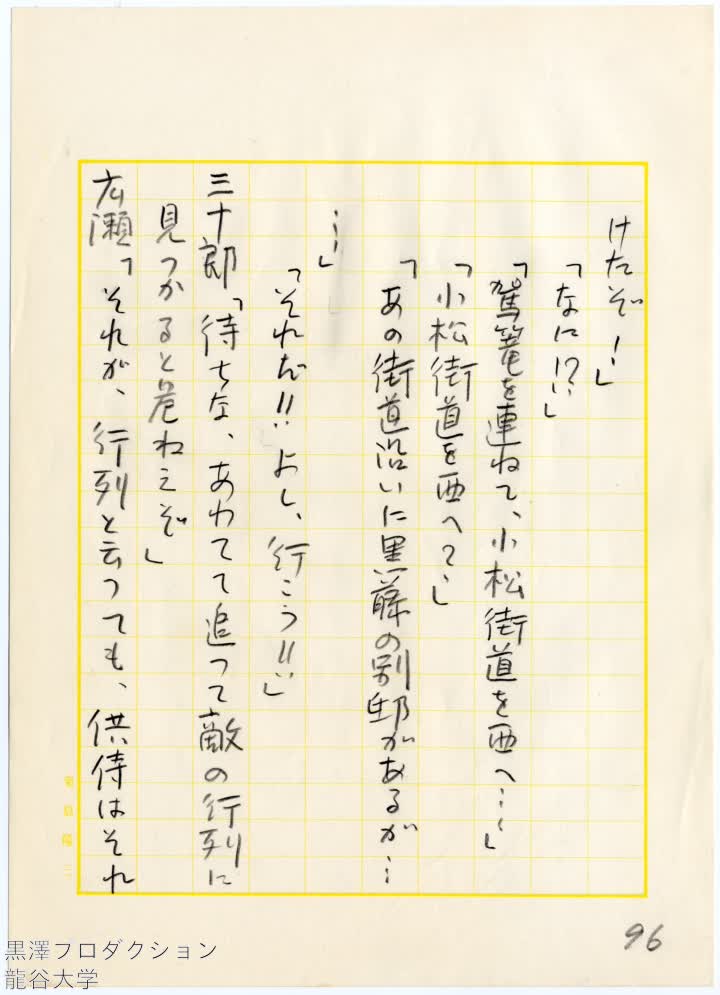 けたぞ！」
「なに!?」
「駕篭を連ねて、小松街道を西へ……」
「小松街道を西へ？」
「あの街道沿いに黒藤の別邸があるが…
…」
「それだ!!よし、行こう!!」
三十郎「待ちな、あわてて追って敵の行列に
見つかると危ねえぞ」
広瀬「それが、行列と云っても、供侍はそれ
96
黒澤プロダクション
龍谷大学